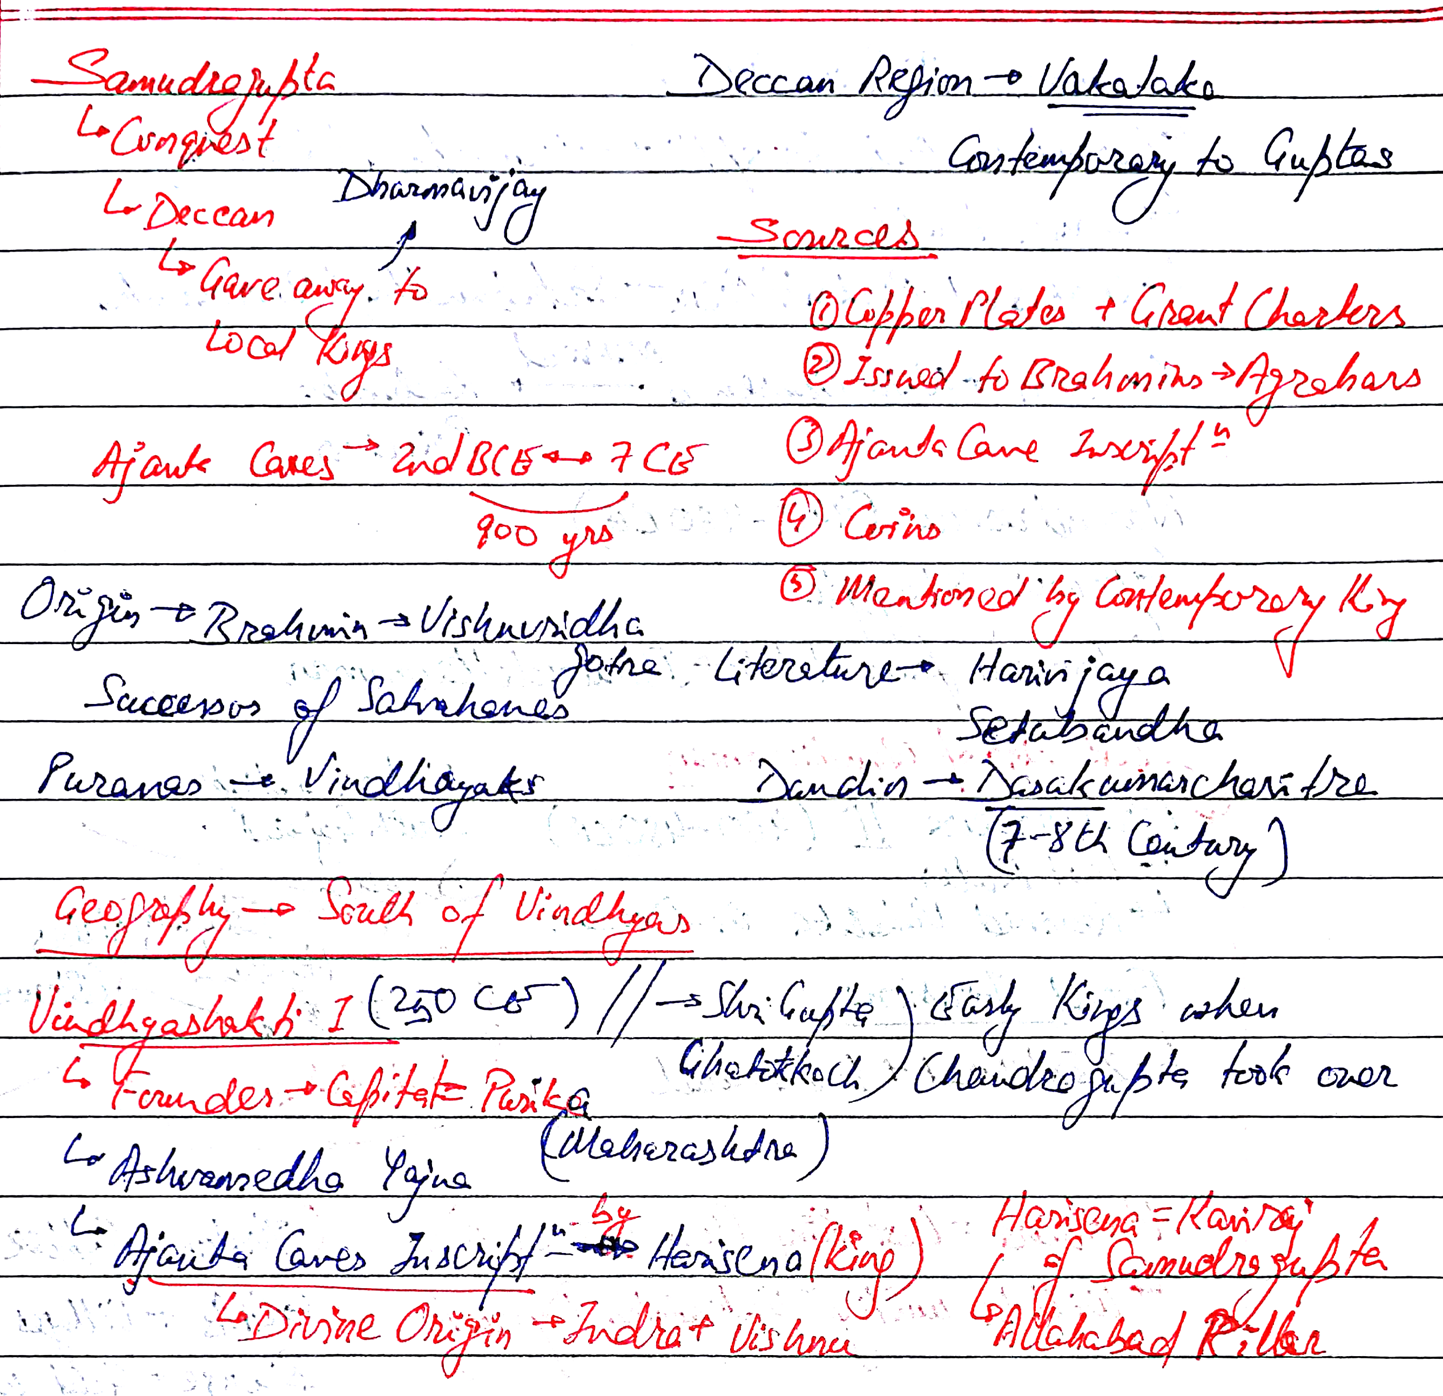 Samudragupta
↳ Conquest
↳ Deccan
Dharmavijay
↳ Gave away to
Local Kings
Deccan Region → Vakataka
Contemporary to Guptas
Sources
① Copper Plates + Grant Charters
② Issued to Brahmins → Agrahars
③ Ajanta Cave Inscriptⁿ
④ Coins
⑤ Mentioned by Contemporary King
Ajanta Caves → 2nd BCE ↔ 7 CE
900 yrs
Origin → Brahmin → Vishnuvridha
gotra
Successos of Satvahanas
Puranas → Vindhayaks
Literature → Harivijaya
Setubandha
Dandin → Dasakumarcharitra
(7-8th Century)
Geography → South of Vindhyas
Vindhyashakti I (250 CE) // → Shri Gupta ) Early Kings when
Ghatotkoch ) Chandragupta took over
↳ Founder → Capital = Purika
(Maharashtra)
↳ Ashvamedha Yajna
↳ Ajanta Caves Inscriptⁿ - by Harisena (King)
↳ Divine Origin → Indra + Vishnu
Harisena = Kaviraj
of Samudragupta
↳ Allahabad Pillar